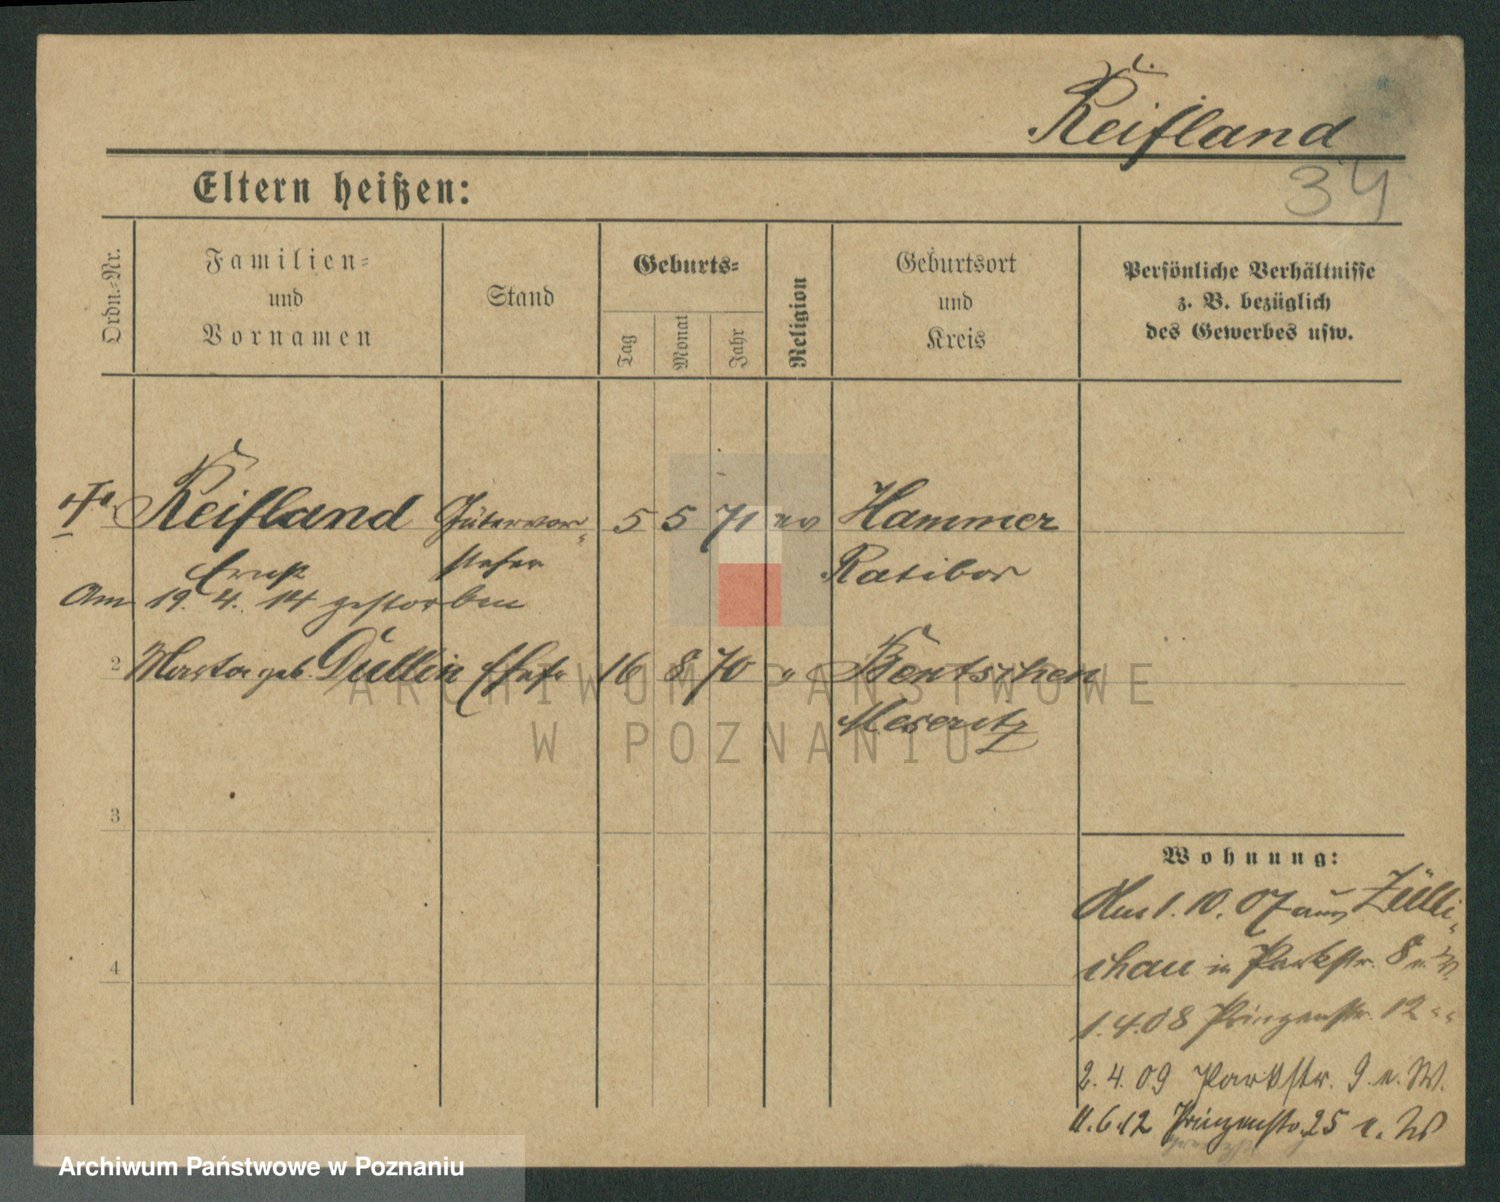 Reifland
34
Eltern heißen:
Ordn.-Nr.
Familien-
und
Vornamen
Stand
Geburts-
Tag
Monat
Jahr
Religion
Geburtsort
und
Kreis
Persönliche Verhältnisse
z. B. bezüglich
des Gewerbes usw.
Reifland Gütervor- 5 5 71 ev Hammer
Ernst steher Ratibor
Am 19. 4. 14 gestorben
2 Marta geb. Dullin Ehefr 16 8 70 " Bentschen
Meseritz
3
4
Wohnung:
Am 1. 10. 07 aus Zülli-
chau in Parkstr. 8 e. W.
1. 4. 08 Prinzenstr. 12 " "
2. 4. 09 Parkstr. 9 e. W.
11. 6. 12 Prinzenstr. 25 e. W
ARCHIWUM PAŃSTWOWE
W POZNANIU
Archiwum Państwowe w Poznaniu